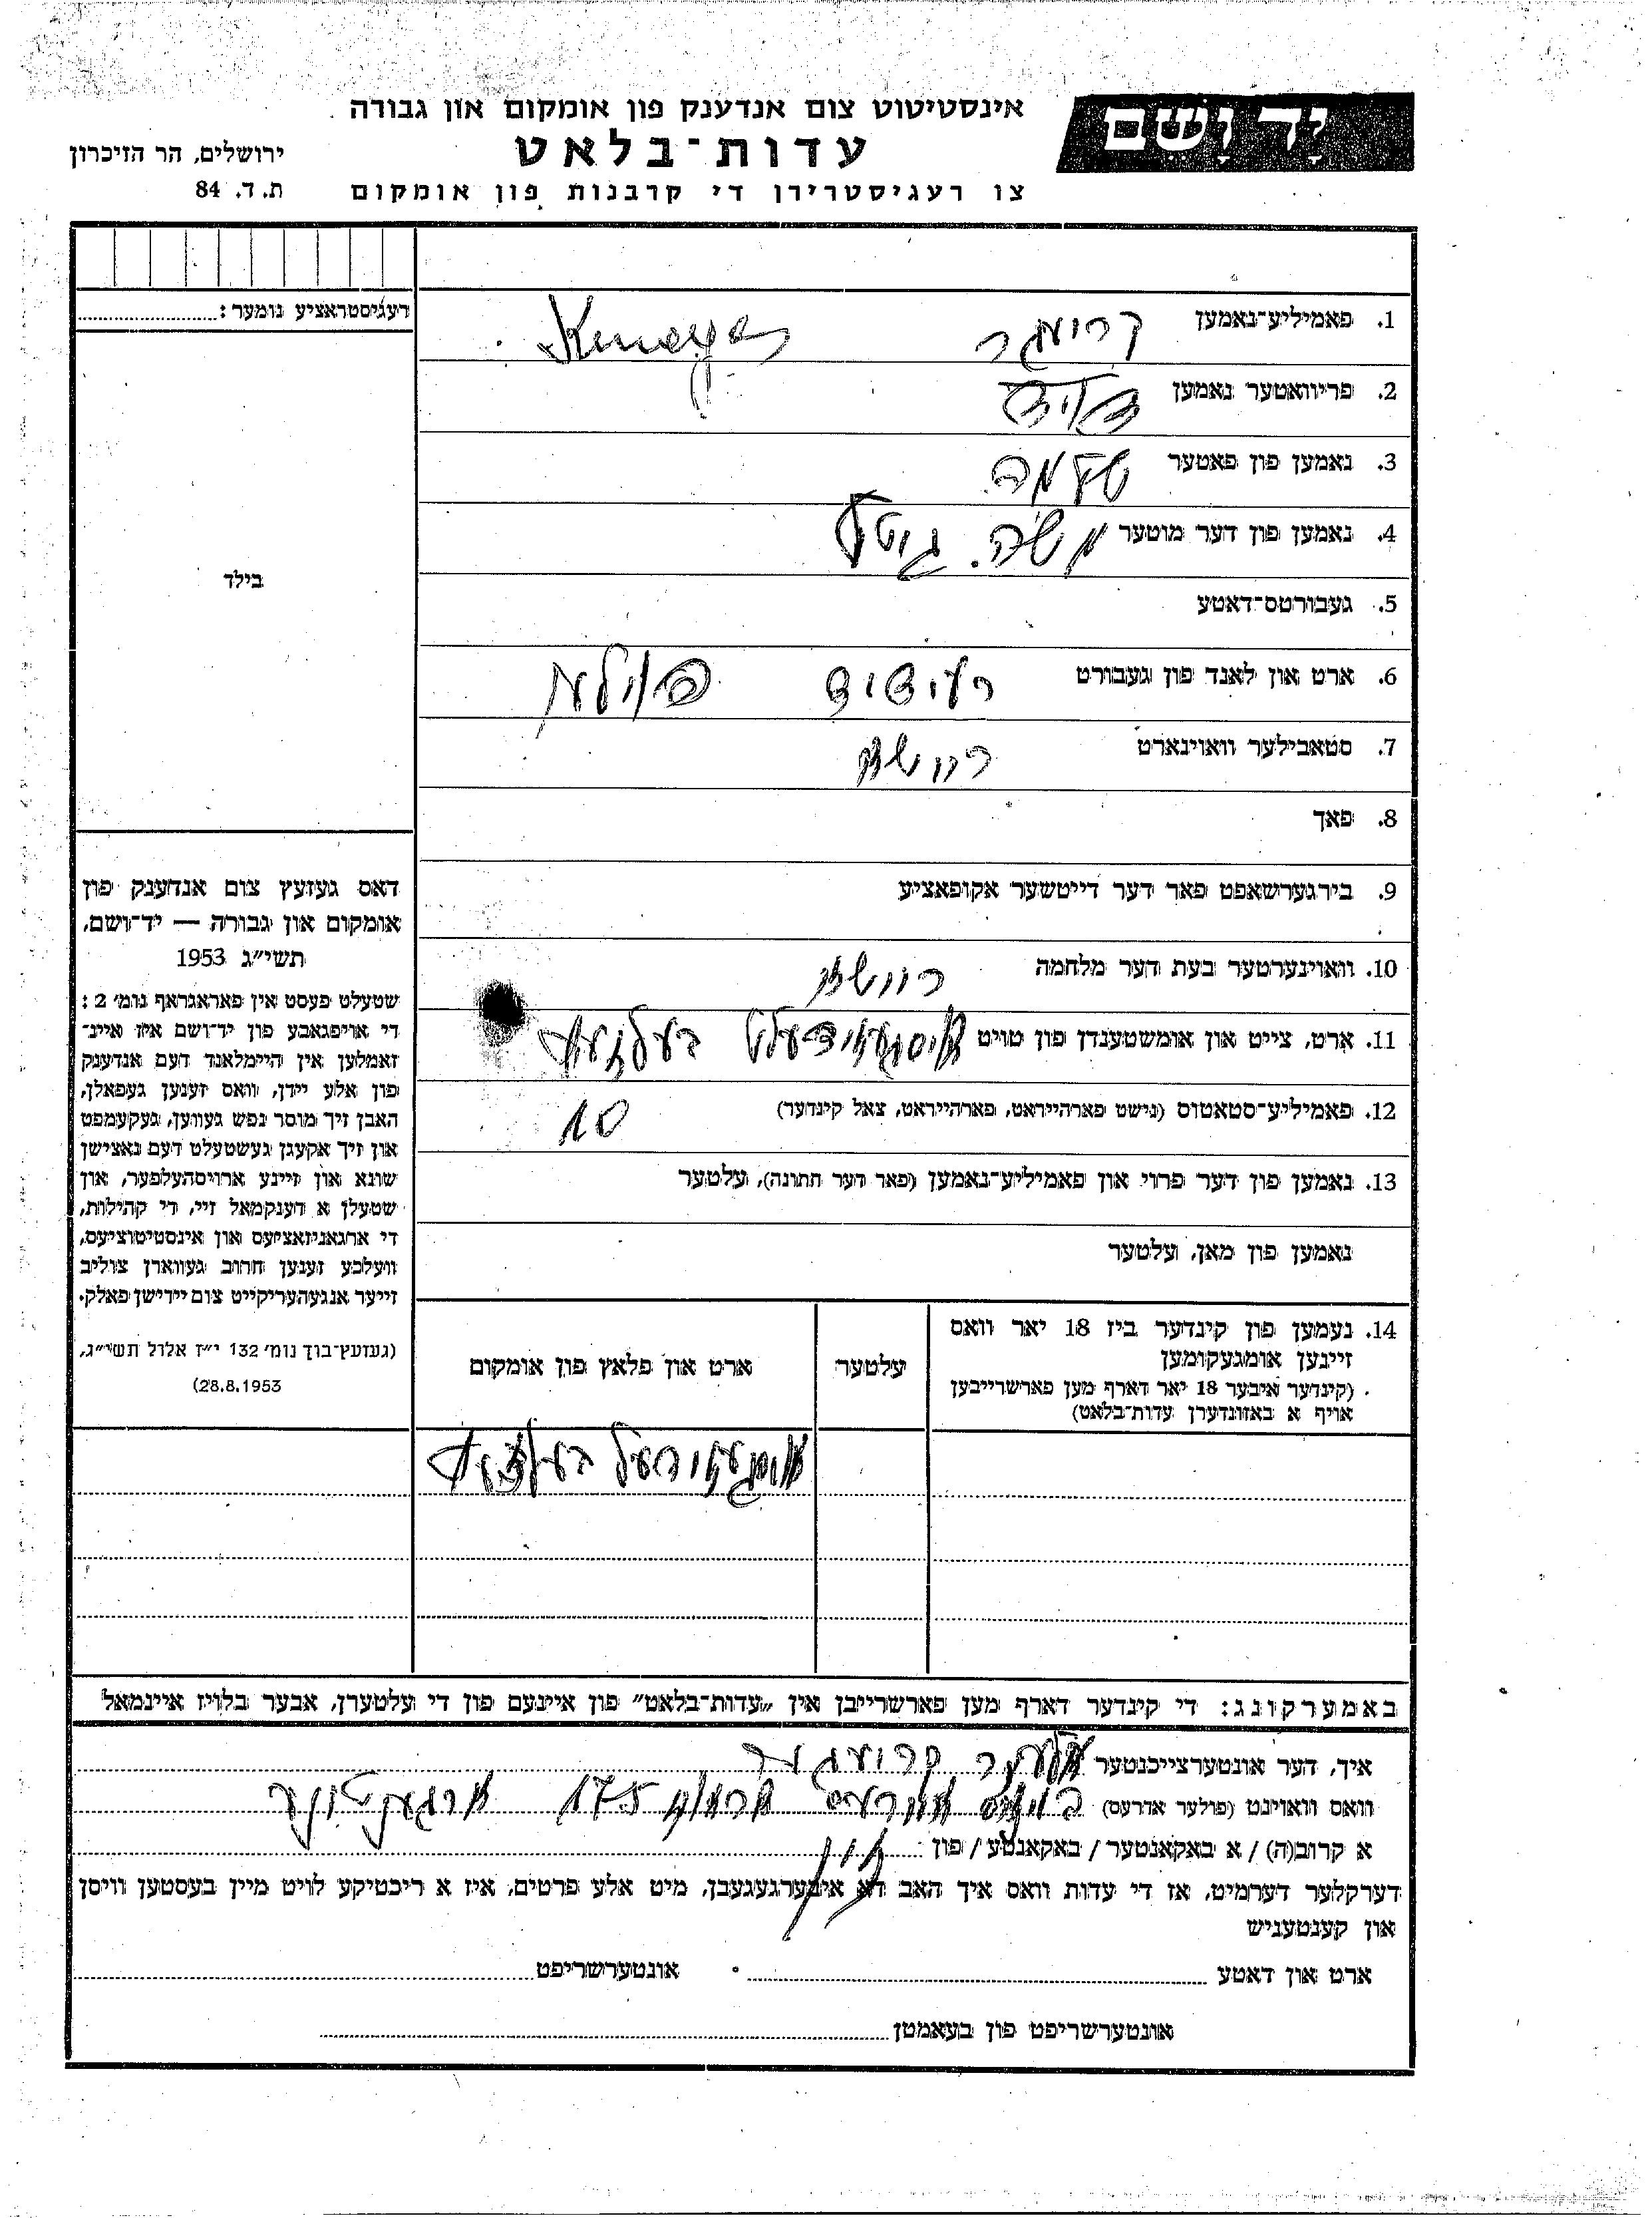 יד ושם
אינסטיטוט צום אנדענק פון אומקום און גבורה
עדות־בלאט
צו רעגיסטרירן די קרבנות פון אומקום
ירושלים, הר הזיכרון
ת. ד. 84
רעגיסטראציע נומער:
1. פאמיליע־נאמען קרועגר
2. פריוואטער נאמען
3. נאמען פון פאטער שלמה
4. נאמען פון דער מוטער משה. גיטל
5. געבורטס־דאטע
6. ארט און לאנד פון געבורט פוילען
7. סטאבילער וואוינארט
8. פאך
9. בירגערשאפט פאר דער דייטשער אקופאציע
10. וואוינערטער בעת דער מלחמה
11. ארט, צייט און אומשטענדן פון טויט
12. פאמיליע־סטאטוס (נישט פארהייראט, פארהייראט, צאל קינדער) 10
13. נאמען פון דער פרוי און פאמיליע־נאמען (פאר דער חתונה), עלטער
נאמען פון מאן, עלטער
בילד
דאס געזעץ צום אנדענק פון
אומקום און גבורה — יד־ושם,
תשי״ג 1953
שטעלט פעסט אין פאראגראף נומ׳ 2:
די אויפגאבע פון יד־ושם איז איינ־
זאמלען אין היימלאנד דעם אנדענק
פון אלע יידן, וואס זענען געפאלן,
האבן זיך מוסר נפש געווען, געקעמפט
און זיך אקעגן געשטעלט דעם נאצישן
שונא און זיינע ארויסהעלפער, און
שטעלן א דענקמאל זיי, די קהילות,
די ארגאניזאציעס און אינסטיטוציעס,
וועלכע זענען חרוב געווארן צוליב
זייער אנגעהעריקייט צום יידישן פאלק.
(געזעץ־בוך נומ׳ 132 י״ז אלול תשי״ג,
28.8.1953)
14. נעמען פון קינדער ביז 18 יאר וואס
זיינען אומגעקומען
(קינדער איבער 18 יאר דארף מען פארשרייבן
אויף א באזונדערן עדות־בלאט)
עלטער
ארט און פלאץ פון אומקום
באמערקונג: די קינדער דארף מען פארשרייבן אין „עדות־בלאט״ פון איינעם פון די עלטערן, אבער בלויז איינמאל
איך, דער אונטערצייכנטער קרועגער
וואס וואוינט (פולער אדרעס) 175 ארגענטינער
א קרוב(ה) / א באקאנטער / באקאנטע / פון
דערקלער דערמיט, אז די עדות וואס איך האב דא איבערגעגעבן, מיט אלע פרטים, איז א ריכטיקע לויט מיין בעסטען וויסן
און קענטעניש
ארט און דאטע אונטערשריפט
אונטערשריפט פון בעאמטן